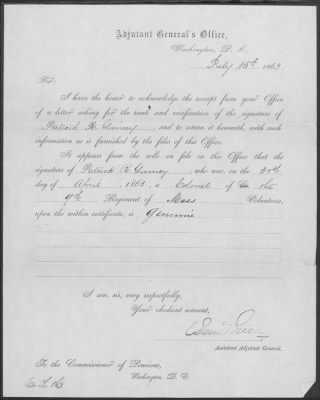 Adjutant General's Office,
Washington, D. C.,
July 15th 1863
Sir:
I have the honor to acknowledge the receipt from your Office
of a letter asking for the rank and verification of the signature of
Patrick R. Guiney, and to return it herewith, with such
information as is furnished by the files of this Office.
It appears from the rolls on file in this Office that the
signature of Patrick R. Guiney, who was, on the
day of April, 1863, a Colonel of the
9th Regiment of Mass Volunteers,
upon the within certificate, is Genuine
I am, sir, very respectfully,
Your obedient servant,
Assistant Adjutant General.
To the Commissioner of Pensions,
Washington, D. C.